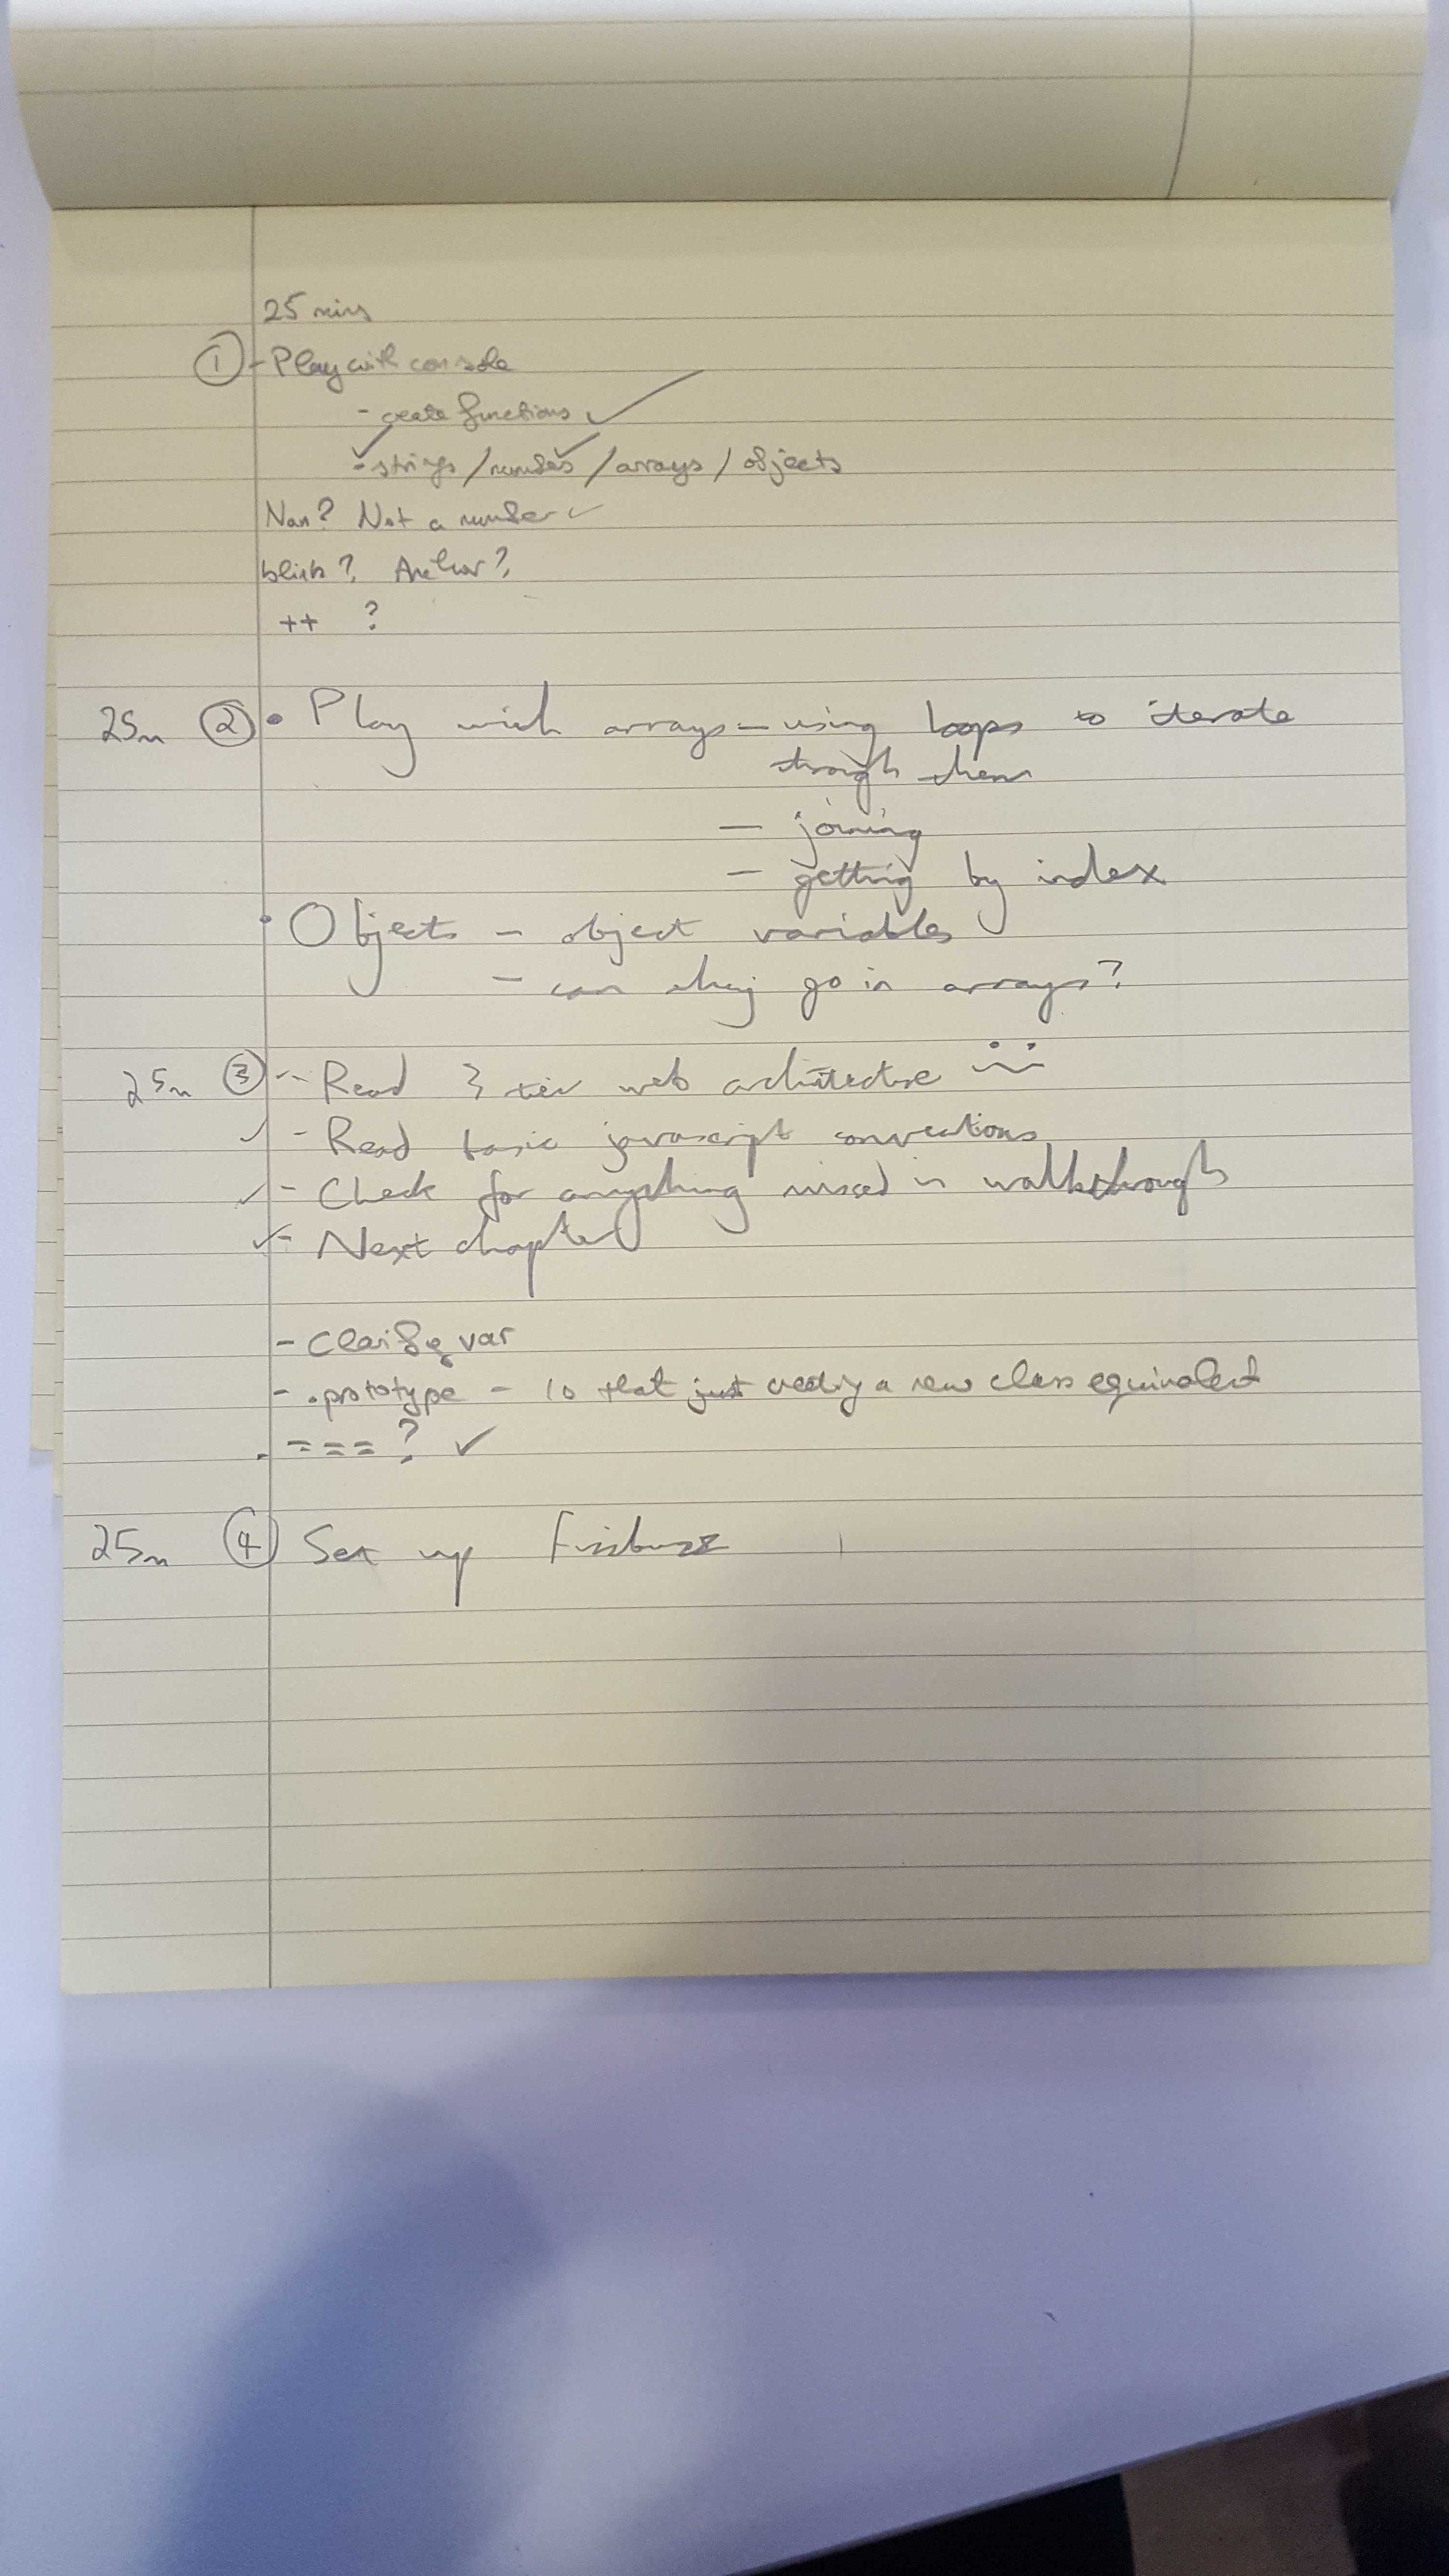 25 mins
① - Play with console
- create functions ✓
✓ - strings / numbers ✓ / arrays / objects
Nan? Not a number ✓
blink? Anchor?
++ ?
25m ② • Play with arrays - using loops to iterate
through them
- joining
- getting by index
• Objects - object variables
- can they go in arrays?
25m ③ - Read 3 tier web architecture
✓ - Read basic javascript conventions
✓ - Check for anything missed in walkthrough
✓ - Next chapter
- Clarify var
- .prototype - is that just creating a new class equivalent
. === ? ✓
25m ④ Set up Fizzbuzz